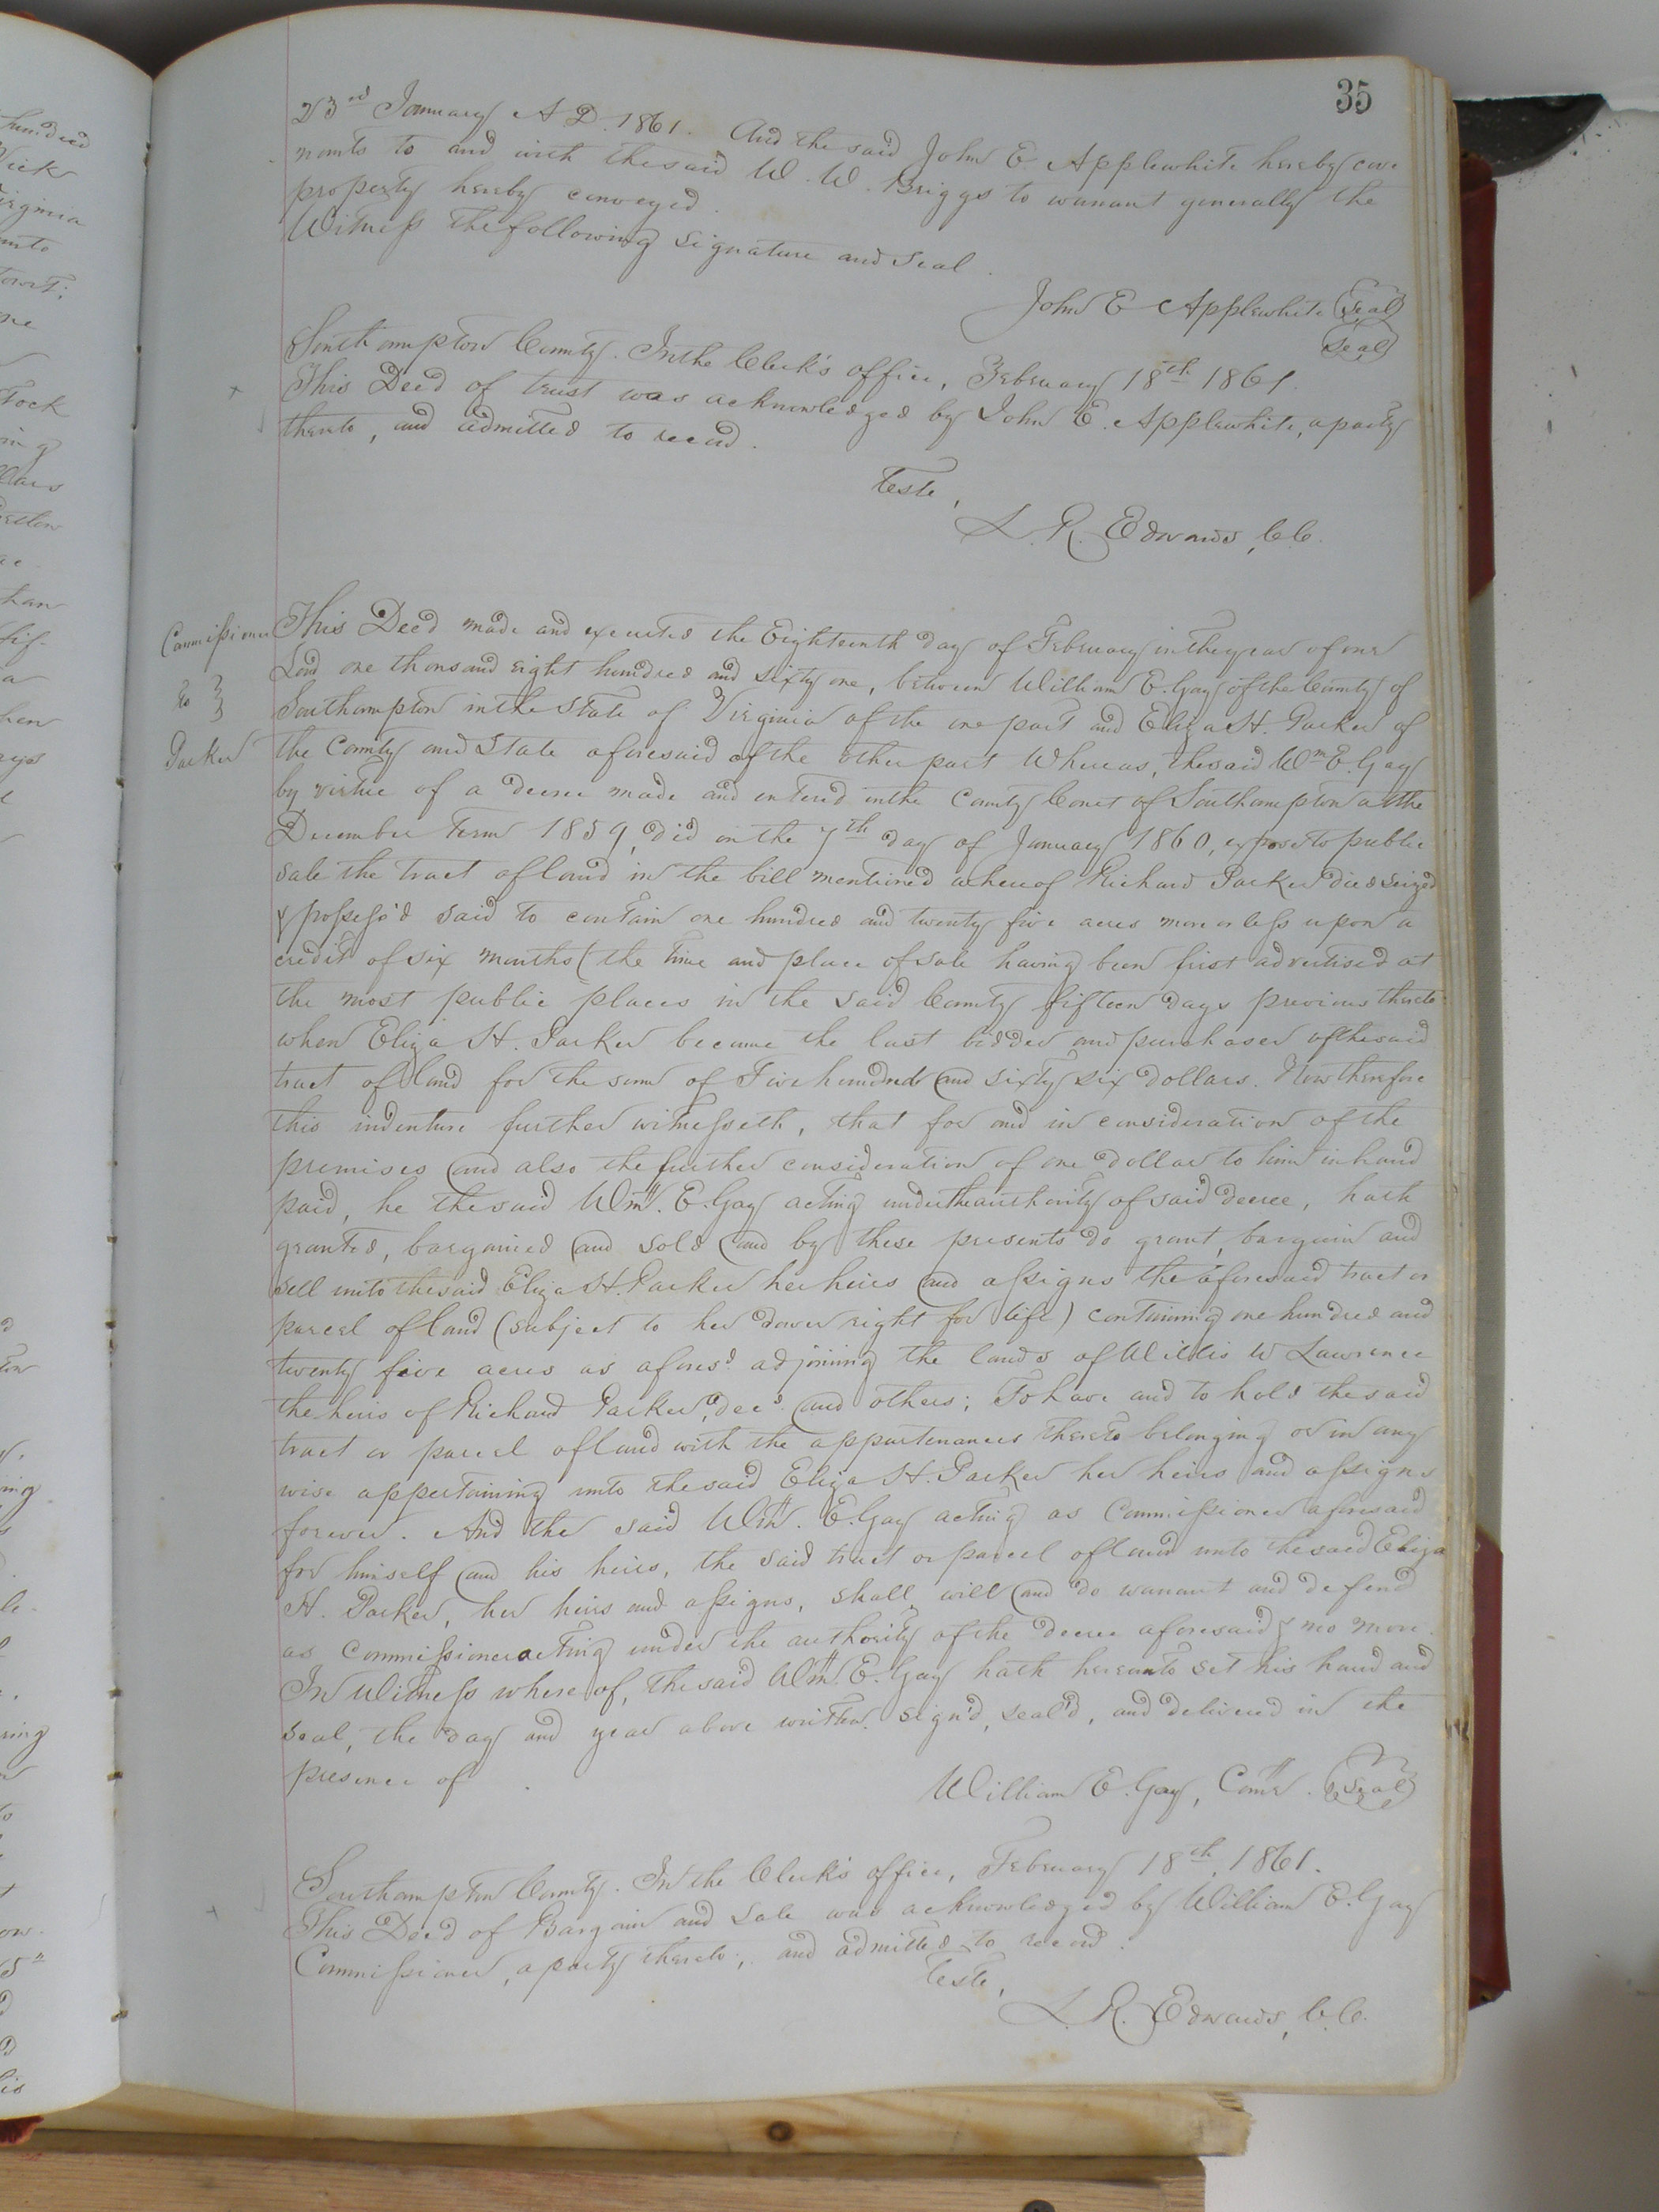 35
23rd January A D. 1861. And the said John E. Applewhite hereby cove
nants to and with the said W. W. Briggs to warrant generally the
property hereby conveyed.
Witness the following signature and seal.
John E Applewhite Seal
Seal
Southampton County. In the Clerk's office, February 18th 1861.
This Deed of trust was acknowledged by John E. Applewhite, a party
thereto, and admitted to record.
Teste,
L. R. Edwards, C.C.
Commissioner
to
Parker
This Deed made and executed the Eighteenth day of February in the year of our
Lord one thousand eight hundred and sixty one, between William E. Gay of the County of
Southampton in the State of Virginia of the one part and Eliza H. Parker of
the County and State aforesaid of the other part Whereas, the said Wm E. Gay
by virtue of a decree made and entered in the County Court of Southampton at the
December Term 1859, did on the 7th day of January 1860, expose to public
sale the tract of land in the bill mentioned whereof Richard Parker died seized
& possess'd said to contain one hundred and twenty five acres more or less upon a
credit of six months (the time and place of sale having been first advertised at
the most public places in the said County fifteen days previous thereto
when Eliza H. Parker became the last bidder and purchaser of the said
tract of land for the sum of Five hundred and sixty six dollars. Now therefore
this indenture further witnesseth, that for and in consideration of the
premises and also the further consideration of one dollar to him in hand
paid, he the said Wm. E. Gay acting under the authority of said decree, hath
granted, bargained and sold and by these presents do grant, bargain and
sell unto the said Eliza H. Parker her heirs and assigns the aforesaid tract or
parcel of land (subject to her dower right for life) containing one hundred and
twenty five acres as afores'd adjoining the lands of Willis W Lawrence
the heirs of Richard Parker, dec'd and others; To have and to hold the said
tract or parcel of land with the appurtenances thereto belonging or in any
wise appertaining unto the said Eliza H. Parker her heirs and assigns
forever. And the said Wm. E. Gay acting as Commissioner aforesaid
for himself and his heirs, the said tract or parcel of land unto the said Eliza
H. Parker, her heirs and assigns, shall, will and do warrant and defend
as commissioner acting under the authority of the decree aforesaid & no more.
In Witness whereof, the said Wm. E. Gay hath hereunto set his hand and
seal, the day and year above written. sign'd, seal'd, and delivered in the
presence of
William E. Gay, Comr. Seal
Southampton County. In the Clerk's office, February 18th, 1861.
This Deed of Bargain and Sale was acknowledged by William E. Gay
Commissioner, a party thereto, and admitted to record.
Teste,
L. R. Edwards, C.C.